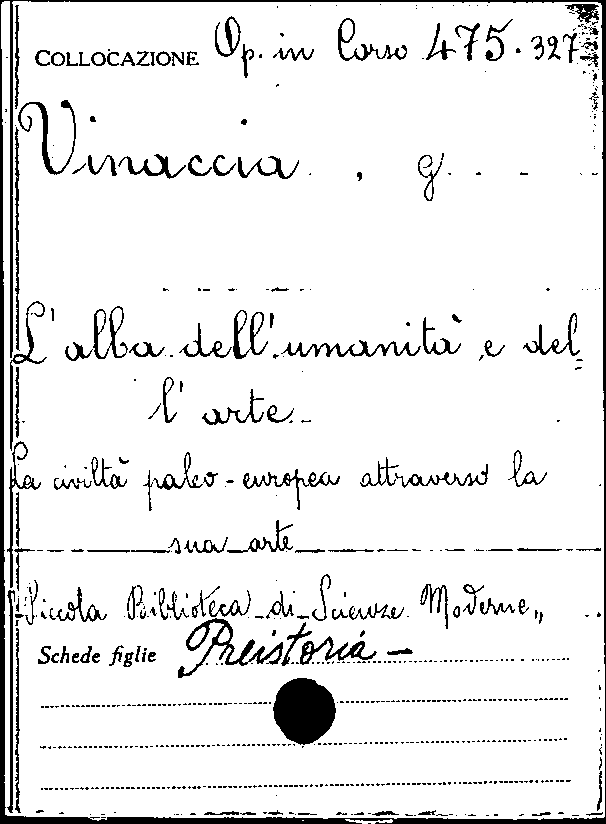 COLLOCAZIONE Op. in Corso 475.327
Vinaccia, G.
L'alba dell'umanità e del=
l'arte
La civiltà paleo-europea attraverso la
sua arte
"Piccola Biblioteca di Scienze Moderne„
Schede figlie Preistoria -